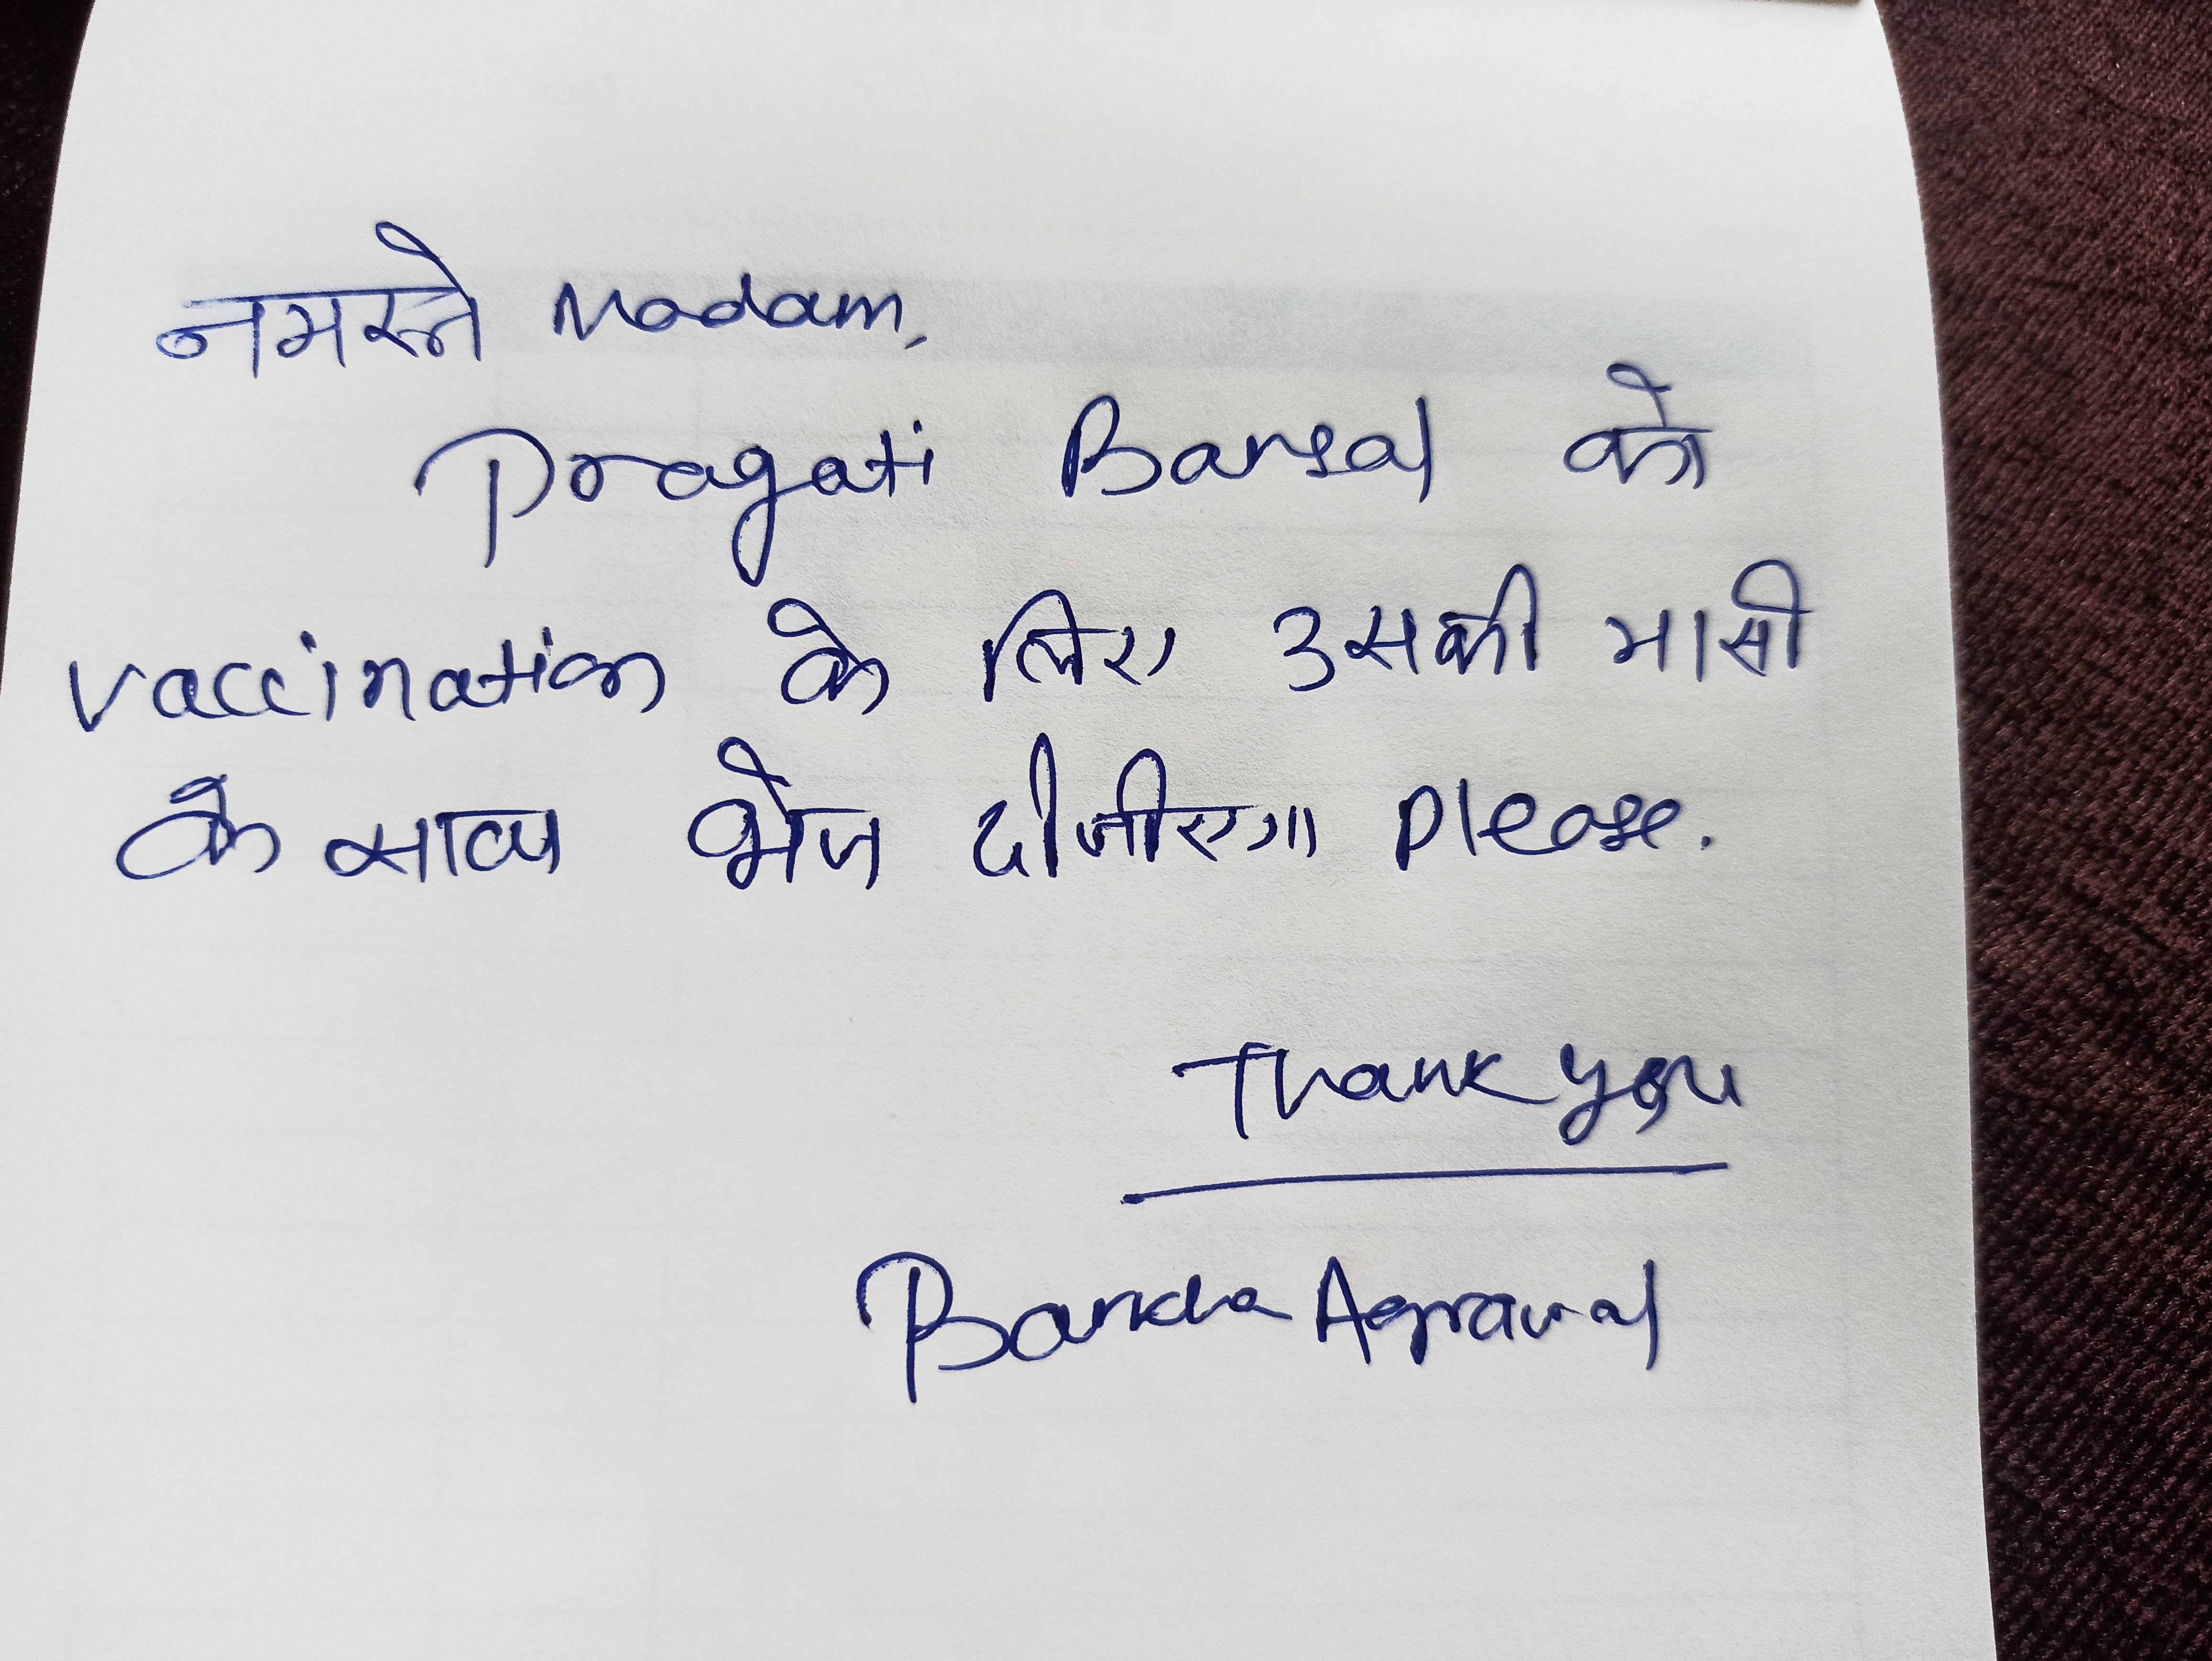 नमस्ते Madam,
Pragati Bansal को
vaccination के लिए उसकी मासी
के साथ भेज दीजीएगा please.
Thank you
Barkha Agrawal